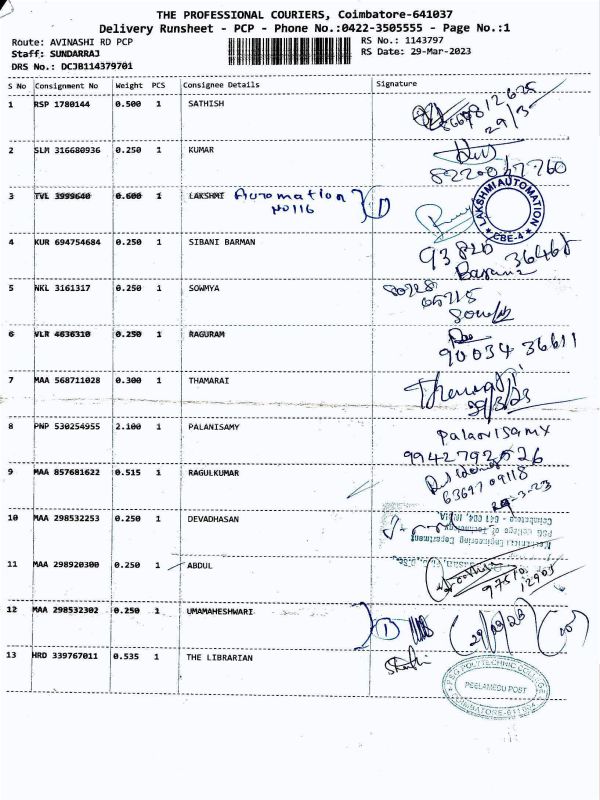 THE PROFESSIONAL COURIERS, Coimbatore-641037
Delivery Runsheet - PCP - Phone No.:0422-3505555 - Page No.:1
Route: AVINASHI RD PCP
RS No.: 1143797
Staff: SUNDARRAJ
RS Date: 29-Mar-2023
DRS No.: DCJB114379701
S No Consignment No Weight PCS Consignee Details Signature
1 RSP 1780144 0.500 1 SATHISH
29/3
2 SLM 316680936 0.250 1 KUMAR
3 TVL 3999640 0.600 1 LAKSHMI Automation
LAKSHMI AUTOMATION
CBE-4
4 KUR 694754684 0.250 1 SIBANI BARMAN
93820
36468
5 NKL 3161317 0.250 1 SOWMYA
6 VLR 4636310 0.250 1 RAGURAM
90034 36611
7 MAA 568711028 0.300 1 THAMARAI
29/3/23
8 PNP 530254955 2.100 1 PALANISAMY
Palanisamy
9942792526
9 MAA 857681622 0.515 1 RAGULKUMAR
6369709118
29-3-23
10 MAA 298532253 0.250 1 DEVADHASAN
Engineering Department
PSG College of Technology
Coimbatore - 641 004, INDIA
11 MAA 298920300 0.250 1 ABDUL
97510
12903
12 MAA 298532302 0.250 1 UMAMAHESHWARI
1
29/03/23
13 HRD 339767011 0.535 1 THE LIBRARIAN
PSG POLYTECHNIC COLLEGE
PEELAMEDU POST